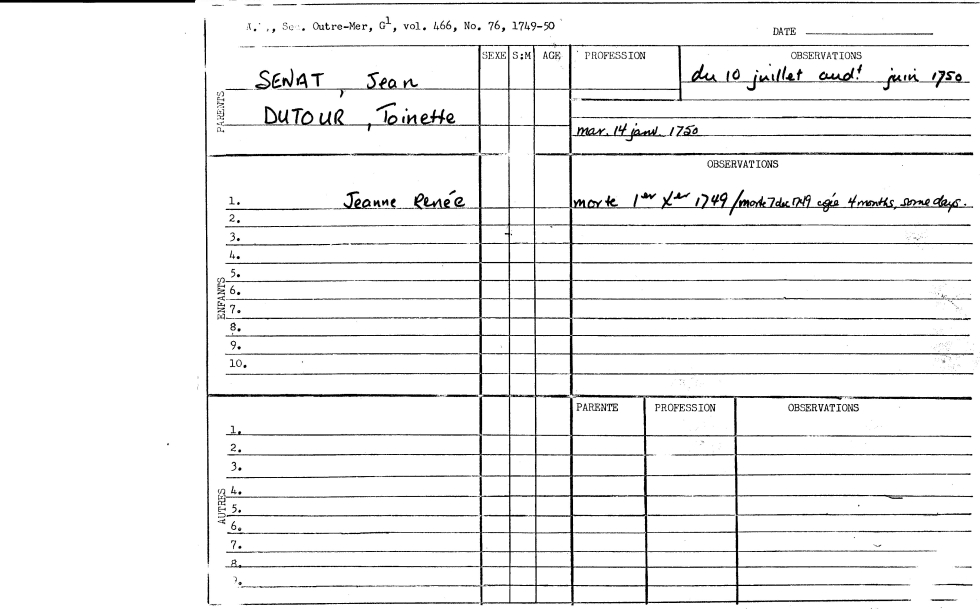 A.N., Sec. Outre-Mer, G1, vol. 466, No. 76, 1749-50
DATE
SEXE S:M AGE PROFESSION OBSERVATIONS
PARENTS
SENAT, Jean du 10 juillet audt juin 1750
DUTOUR, Toinette
mar. 14 janv. 1750
OBSERVATIONS
ENFANTS
1. Jeanne Renée morte 1er Xer 1749/morte 7 dec 1749 agée 4 months, some days.
2.
3.
4.
5.
6.
7.
8.
9.
10.
PARENTE PROFESSION OBSERVATIONS
AUTRES
1.
2.
3.
4.
5.
6.
7.
8.
9.